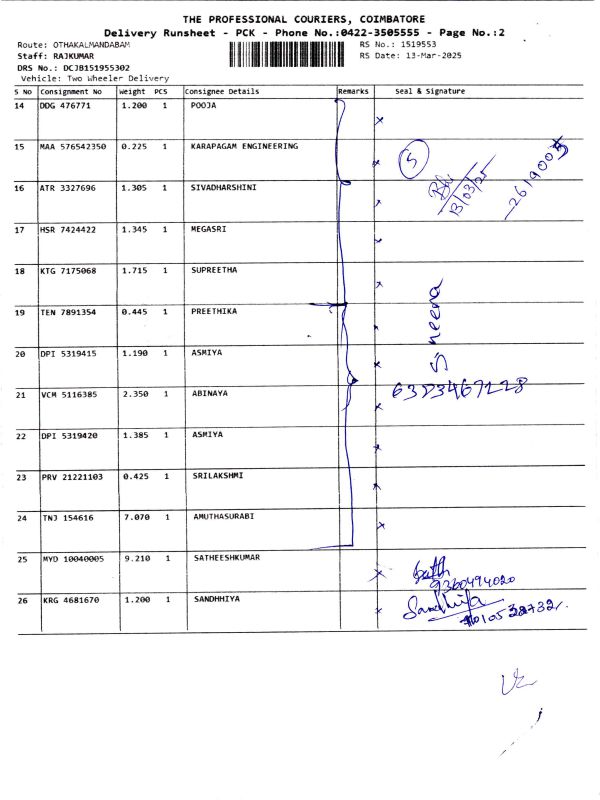 THE PROFESSIONAL COURIERS, COIMBATORE
Delivery Runsheet - PCK - Phone No.:0422-3505555 - Page No.:2
Route: OTHAKALMANDABAM
RS No.: 1519553
Staff: RAJKUMAR
RS Date: 13-Mar-2025
DRS No.: DCJB151955302
Vehicle: Two Wheeler Delivery
S NO Consignment No Weight PCS Consignee Details Remarks Seal & Signature
14 DDG 476771 1.200 1 POOJA
15 MAA 576542350 0.225 1 KARAPAGAM ENGINEERING
5
13/03/25
16 ATR 3327696 1.305 1 SIVADHARSHINI
17 HSR 7424422 1.345 1 MEGASRI
18 KTG 7175068 1.715 1 SUPREETHA
19 TEN 7891354 0.445 1 PREETHIKA
20 DPI 5319415 1.190 1 ASMIYA
21 VCM 5116385 2.350 1 ABINAYA
22 DPI 5319420 1.385 1 ASMIYA
23 PRV 21221103 0.425 1 SRILAKSHMI
24 TNJ 154616 7.070 1 AMUTHASURABI
25 MYD 10040005 9.210 1 SATHEESHKUMAR
9360494020
26 KRG 4681670 1.200 1 SANDHHIYA
Sandhiya